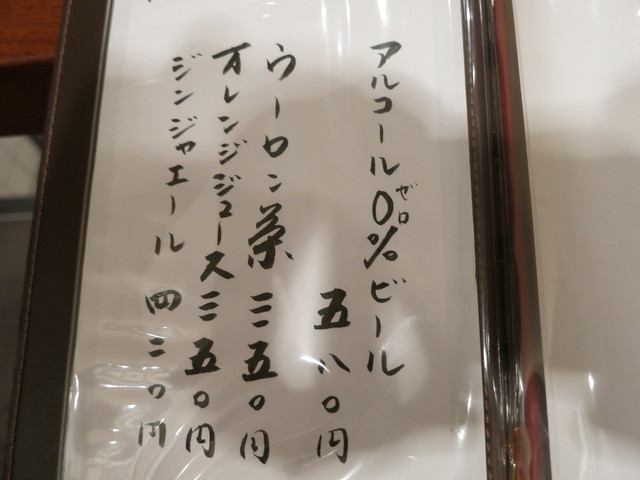 アルコール0%ゼロビール
五八〇円
ウーロン茶 三五〇円
オレンジジュース 三五〇円
ジンジャエール 四三〇円